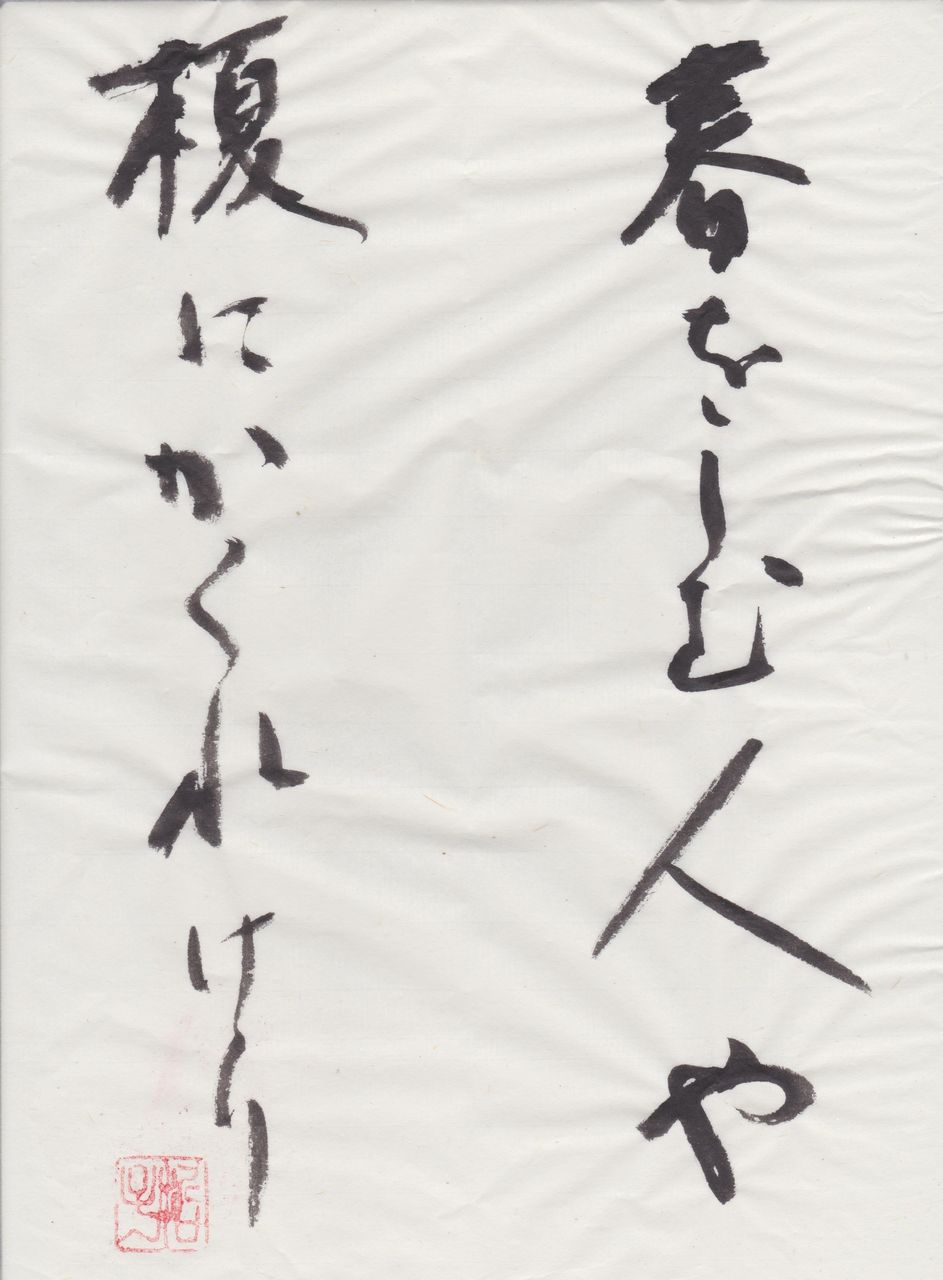 春をしむ人や
榎にかくれけり